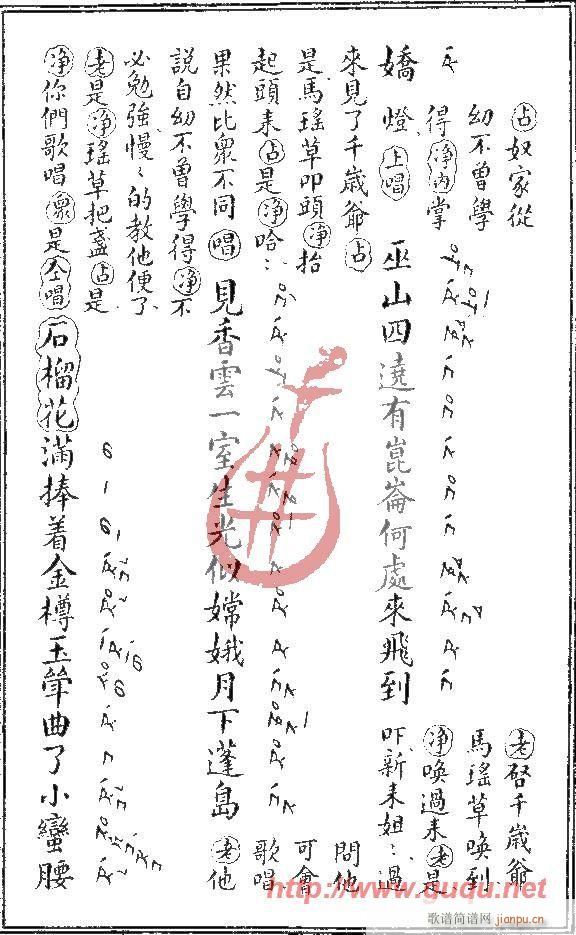 占奴家從
幼不曾學
得净内掌
嬌燈上唱巫山四遶有崑崙何處來飛到
老啓千歲爺
馬瑤草喚到
净喚過來老是
吓新來姐⺀過
來見了千歲爺占
是馬瑤草叩頭净抬
起頭來占是净哈⺀
果然比衆不同唱見香雲一室生光似嫦娥月下蓬島老他
問他
可會
歌唱
說自幼不曾學得净不
必勉強慢⺀的教他便了
老是净瑤草把盞占是
净你們歌唱衆是仝唱石榴花滿捧着金樽玉斝曲了小蠻腰
http://www.guqu.net
歌谱简谱网
jianpu.cn